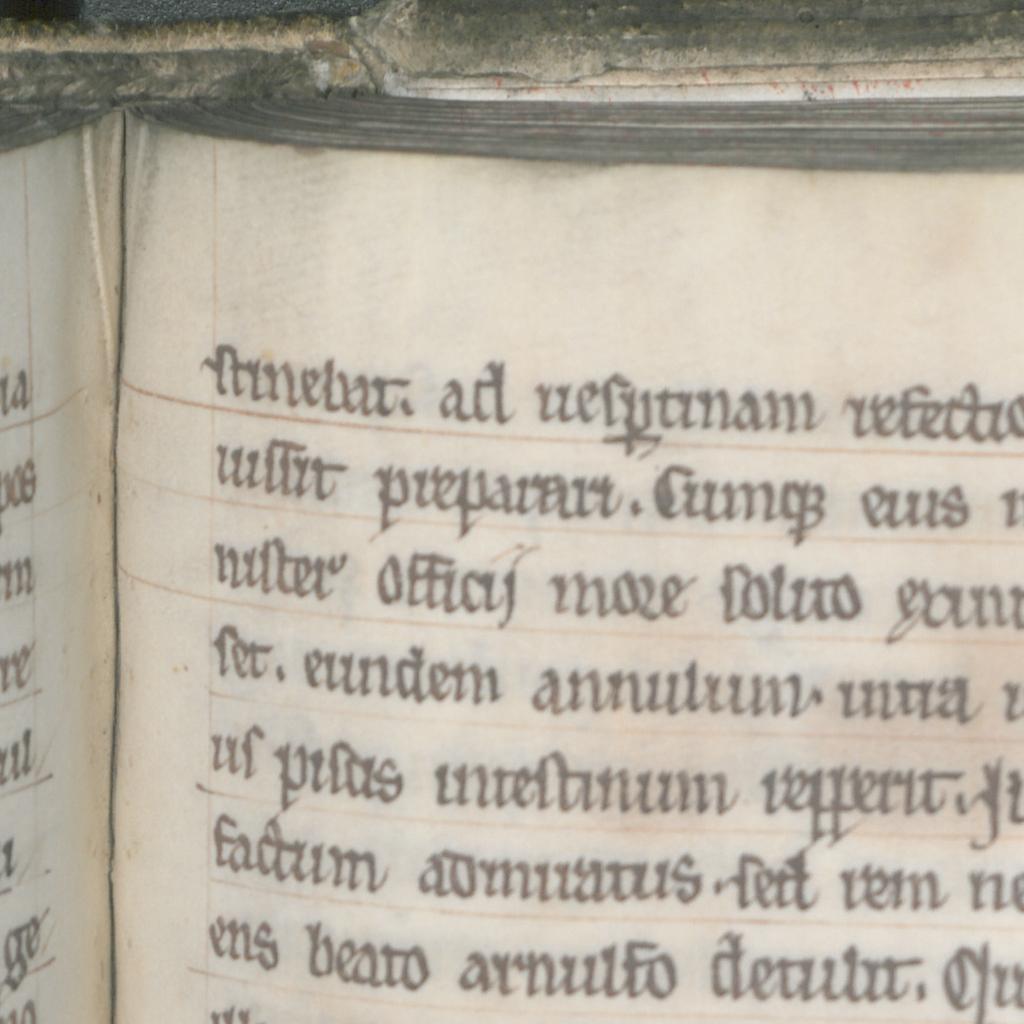 stinebat. ad uesꝑtinam refectio
iussit preparari. Cumqꝫ eius
nister officij more solito exint
set. eundem annulum. intra
us piscis intestinum repperit.
factum admiratus. sed rem ne
ens beato arnulfo detulit. Qu